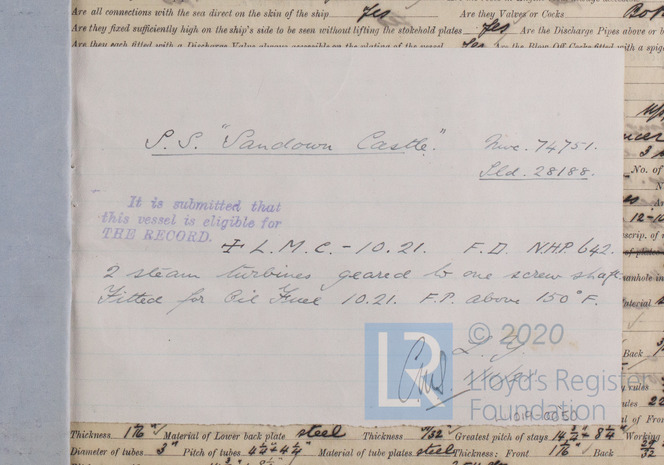 Are all connections with the sea direct on the skin of the ship Yes Are they Valves or Cocks Both
Are they fixed sufficiently high on the ship's side to be seen without lifting the stokehold plates Yes Are the Discharge Pipes above or b
Are they each fitted with a Discharge Valve always accessible on the plating of the vessel Yes Are the Blow Off Cocks fitted with a spig
S.S. "Sandown Castle." Nwc. 74751.
Gld. 28188.
No. of
It is submitted that
this vessel is eligible for
THE RECORD.
12-10
scrip. of
+ L.M.C. - 10.21. F.D. N.H.P. 642.
2 steam turbines geared to one screw shaft.
manhole in
Fitted for Oil Fuel 10.21. F.P. above 150°F.
aterial
LR
© 2020
Lloyd's Register
Foundation
Back
rules
ules 22
of Front
Thickness 1 1/16" Material of Lower back plate steel Thickness 11/32" Greatest pitch of stays Working
Diameter of tubes 3" Pitch of tubes Material of tube plates steel Thickness: Front 1 1/16" Back 29/32